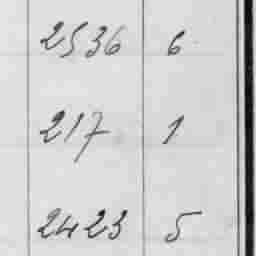 2536 6
217 1
2423 5